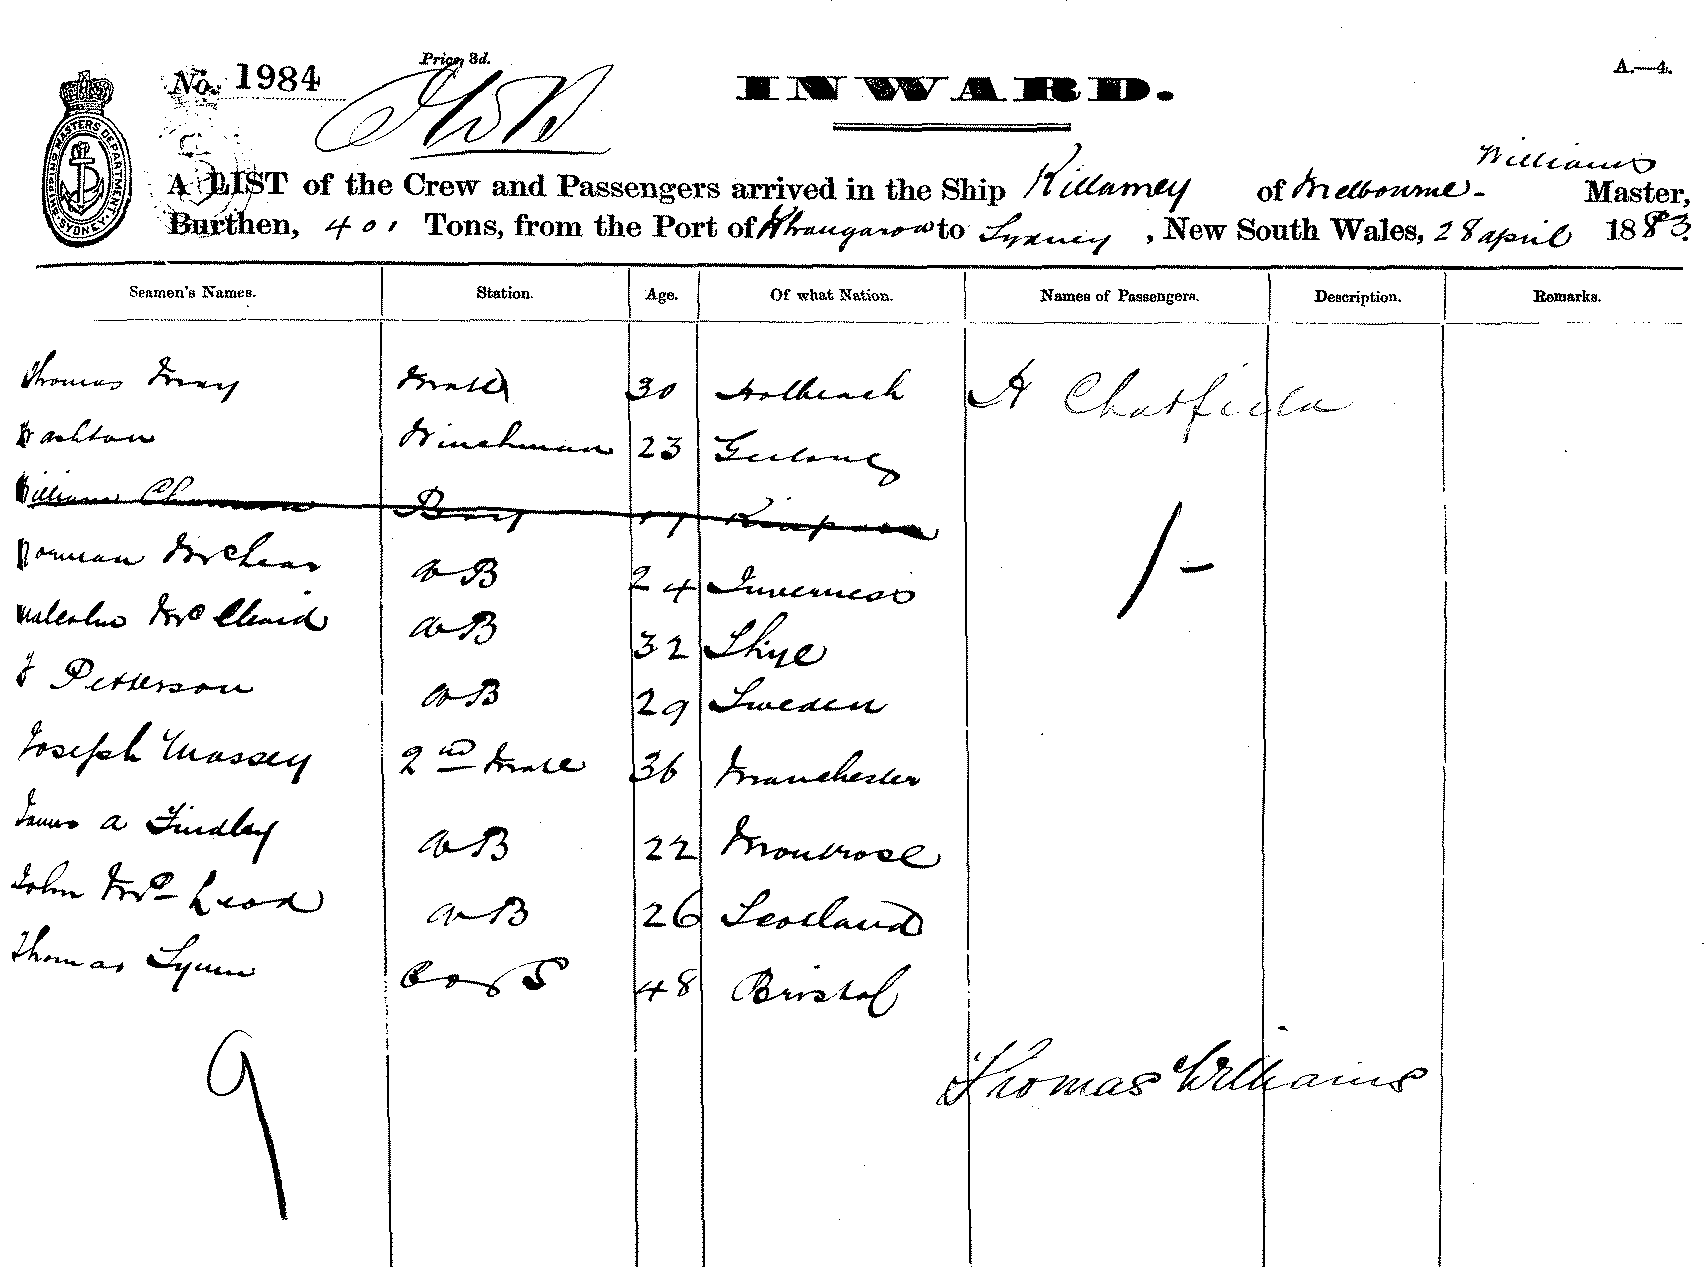 No. 1984
Price, 3d.
INWARD.
A.—4.
SHIPPING MASTERS DEPARTMENT SYDNEY
Williams
A LIST of the Crew and Passengers arrived in the Ship Killarney of Melbourne - Master,
Burthen, 401 Tons, from the Port of to Sydney, New South Wales, 28 April 1883.
Seamen's Names. Station. Age. Of what Nation. Names of Passengers. Description. Remarks.
Thomas May Mate 30 Holbeach H Chatfield
Washton Winchman 23 Geelong
William Boy
Norman AB 24 Inverness
1-
Malcolm McCloid AB 32 Skye
Petterson AB 29 Sweden
Joseph Massey 2nd Mate 36 Manchester
James A Findley AB 22 Montrose
John McLeod AB 26 Scotland
Thomas Lynn 48 Bristol
9
Thomas Williams